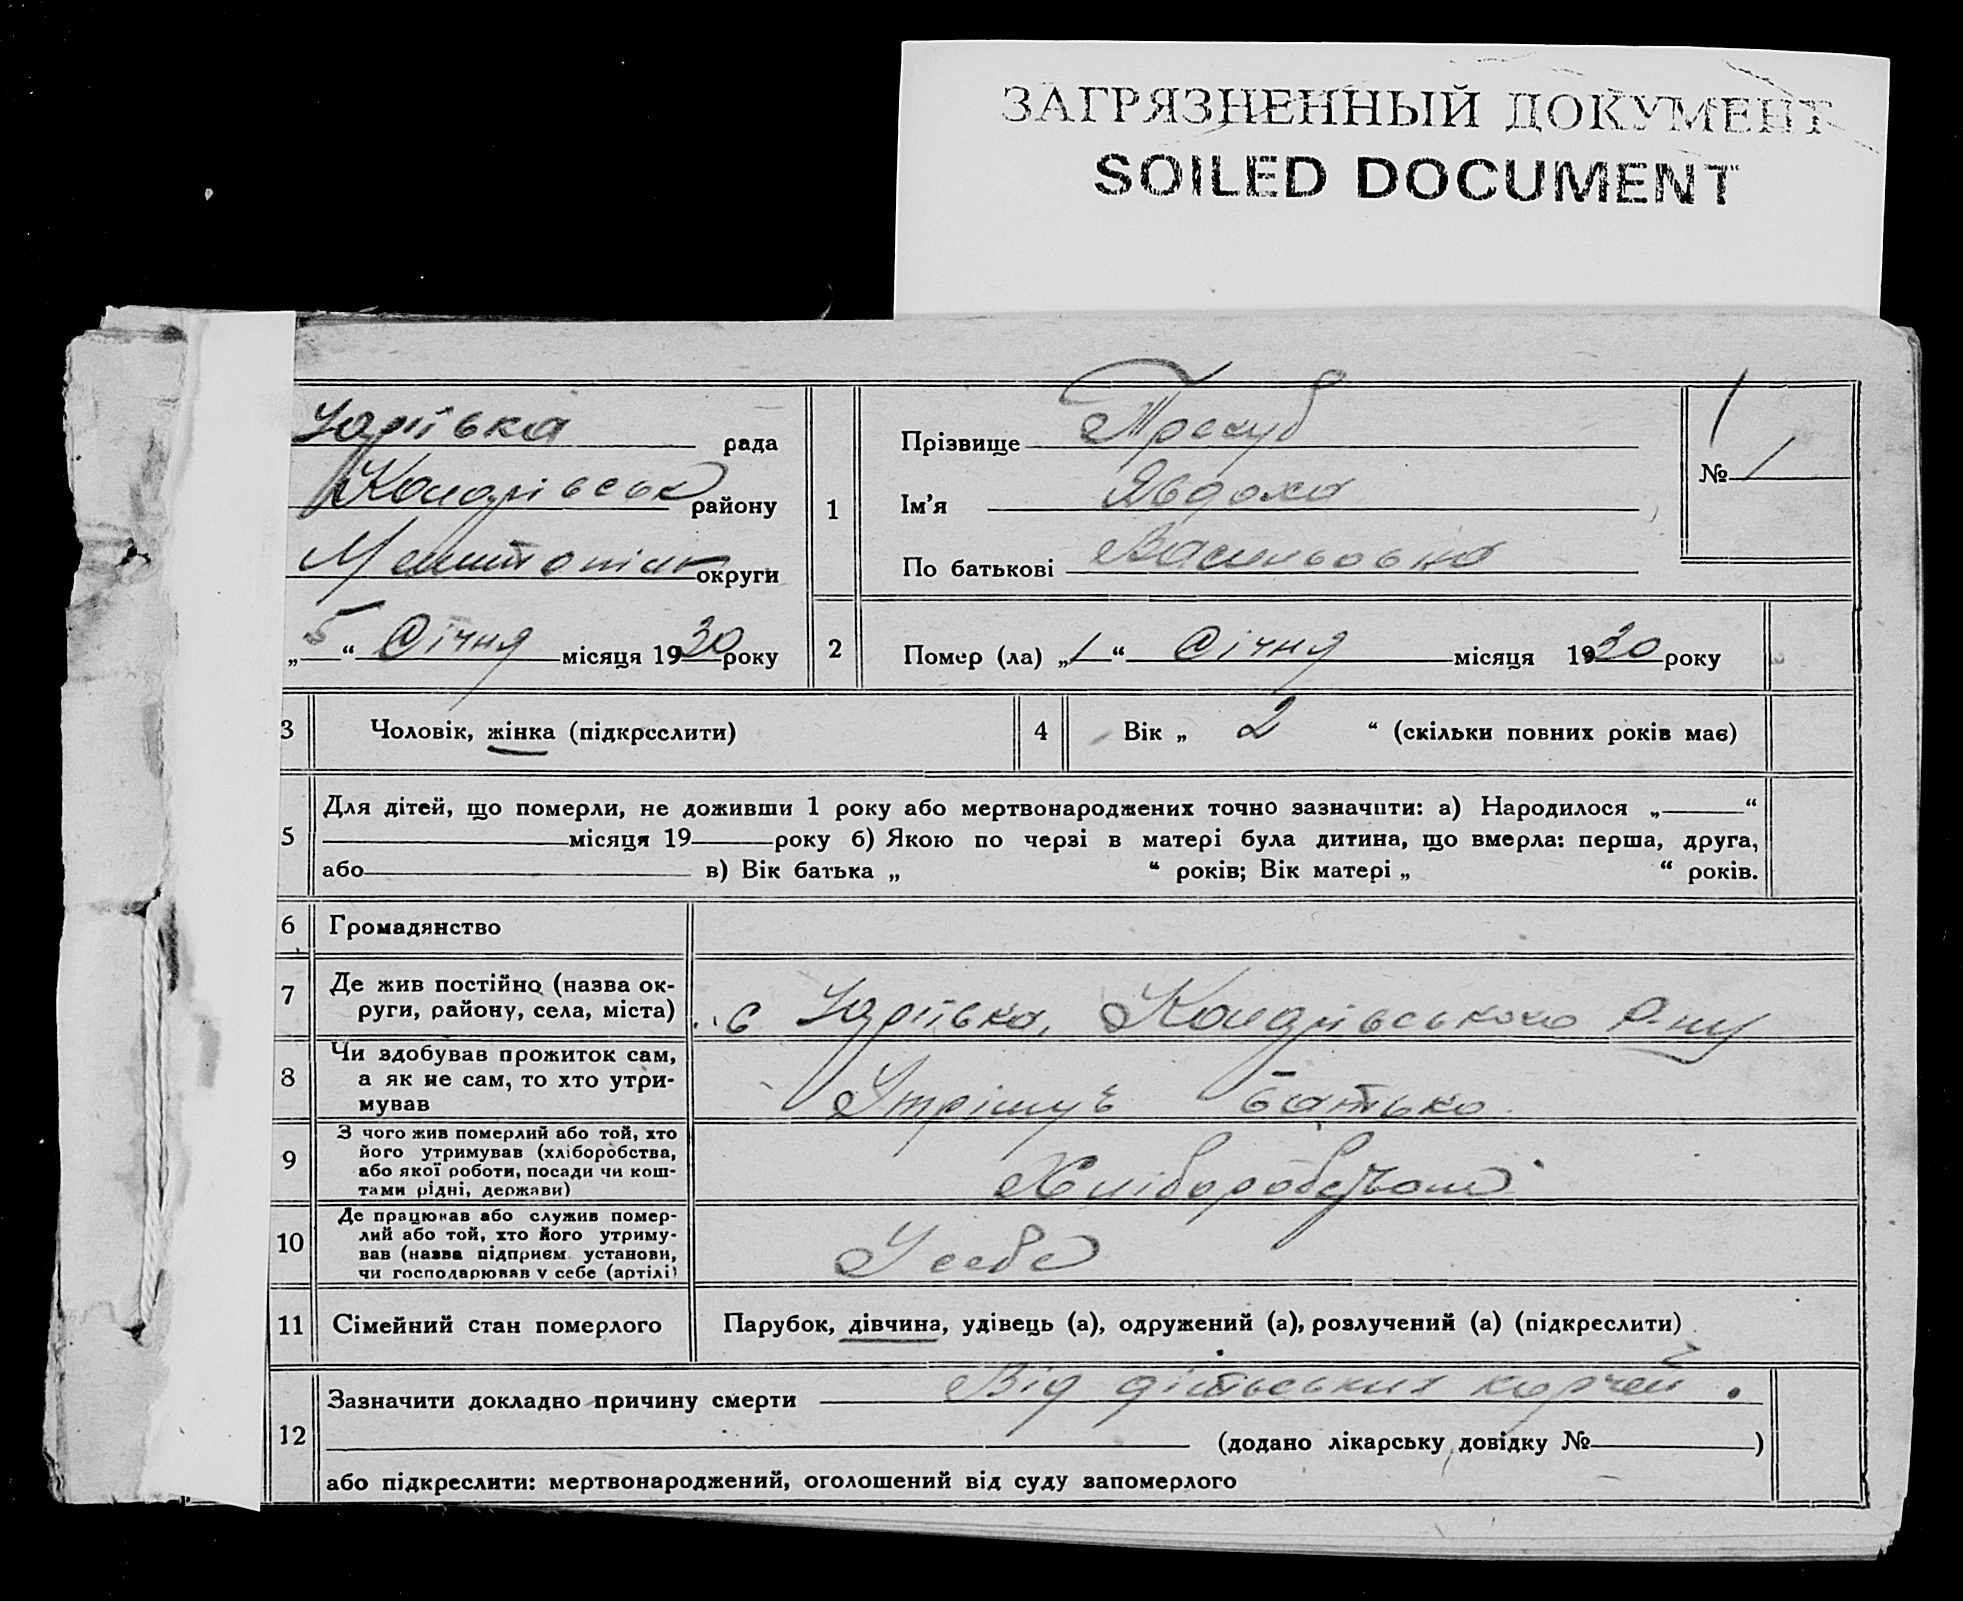 ЗАГРЯЗНЕННЫЙ ДОКУМЕНТ
SOILED DOCUMENT
Юріївка рада
району
округи
„5“ Січня місяця 1930 року
1
Прізвище
Ім'я Явдоха
По батькові Васильовна
№ 1
1
2
Помер (ла) „1“ Січня місяця 1930 року
3
Чоловік, жінка (підкреслити)
4
Вік „ 2 “ (скільки повних років має)
5
Для дітей, що померли, не доживши 1 року або мертвонароджених точно зазначити: а) Народилося „ “
місяця 19 року б) Якою по черзі в матері була дитина, що вмерла: перша, друга,
або в) Вік батька „ “ років; Вік матері „ “ років.
6
Громадянство
7
Де жив постійно (назва ок-
руги, району, села, міста)
с Юріївка, р-ну
8
Чи здобував прожиток сам,
а як не сам, то хто утри-
мував
Утрімує батько
9
З чого жив померлий або той, хто
його утримував (хліборобства,
або якої роботи, посади чи кош-
тами рідні, держави)
10
Де працював або служив помер-
лий або той, хто його утриму-
вав (назва підприєм. установи,
чи господарював у себе (артілі)
У себе
11
Сімейний стан померлого
Парубок, дівчина, удівець (а), одружений (а), розлучений (а) (підкреслити)
12
Зазначити докладно причину смерти Від дітьських корчей.
(додано лікарську довідку № )
або підкреслити: мертвонароджений, оголошений від суду запомерлого